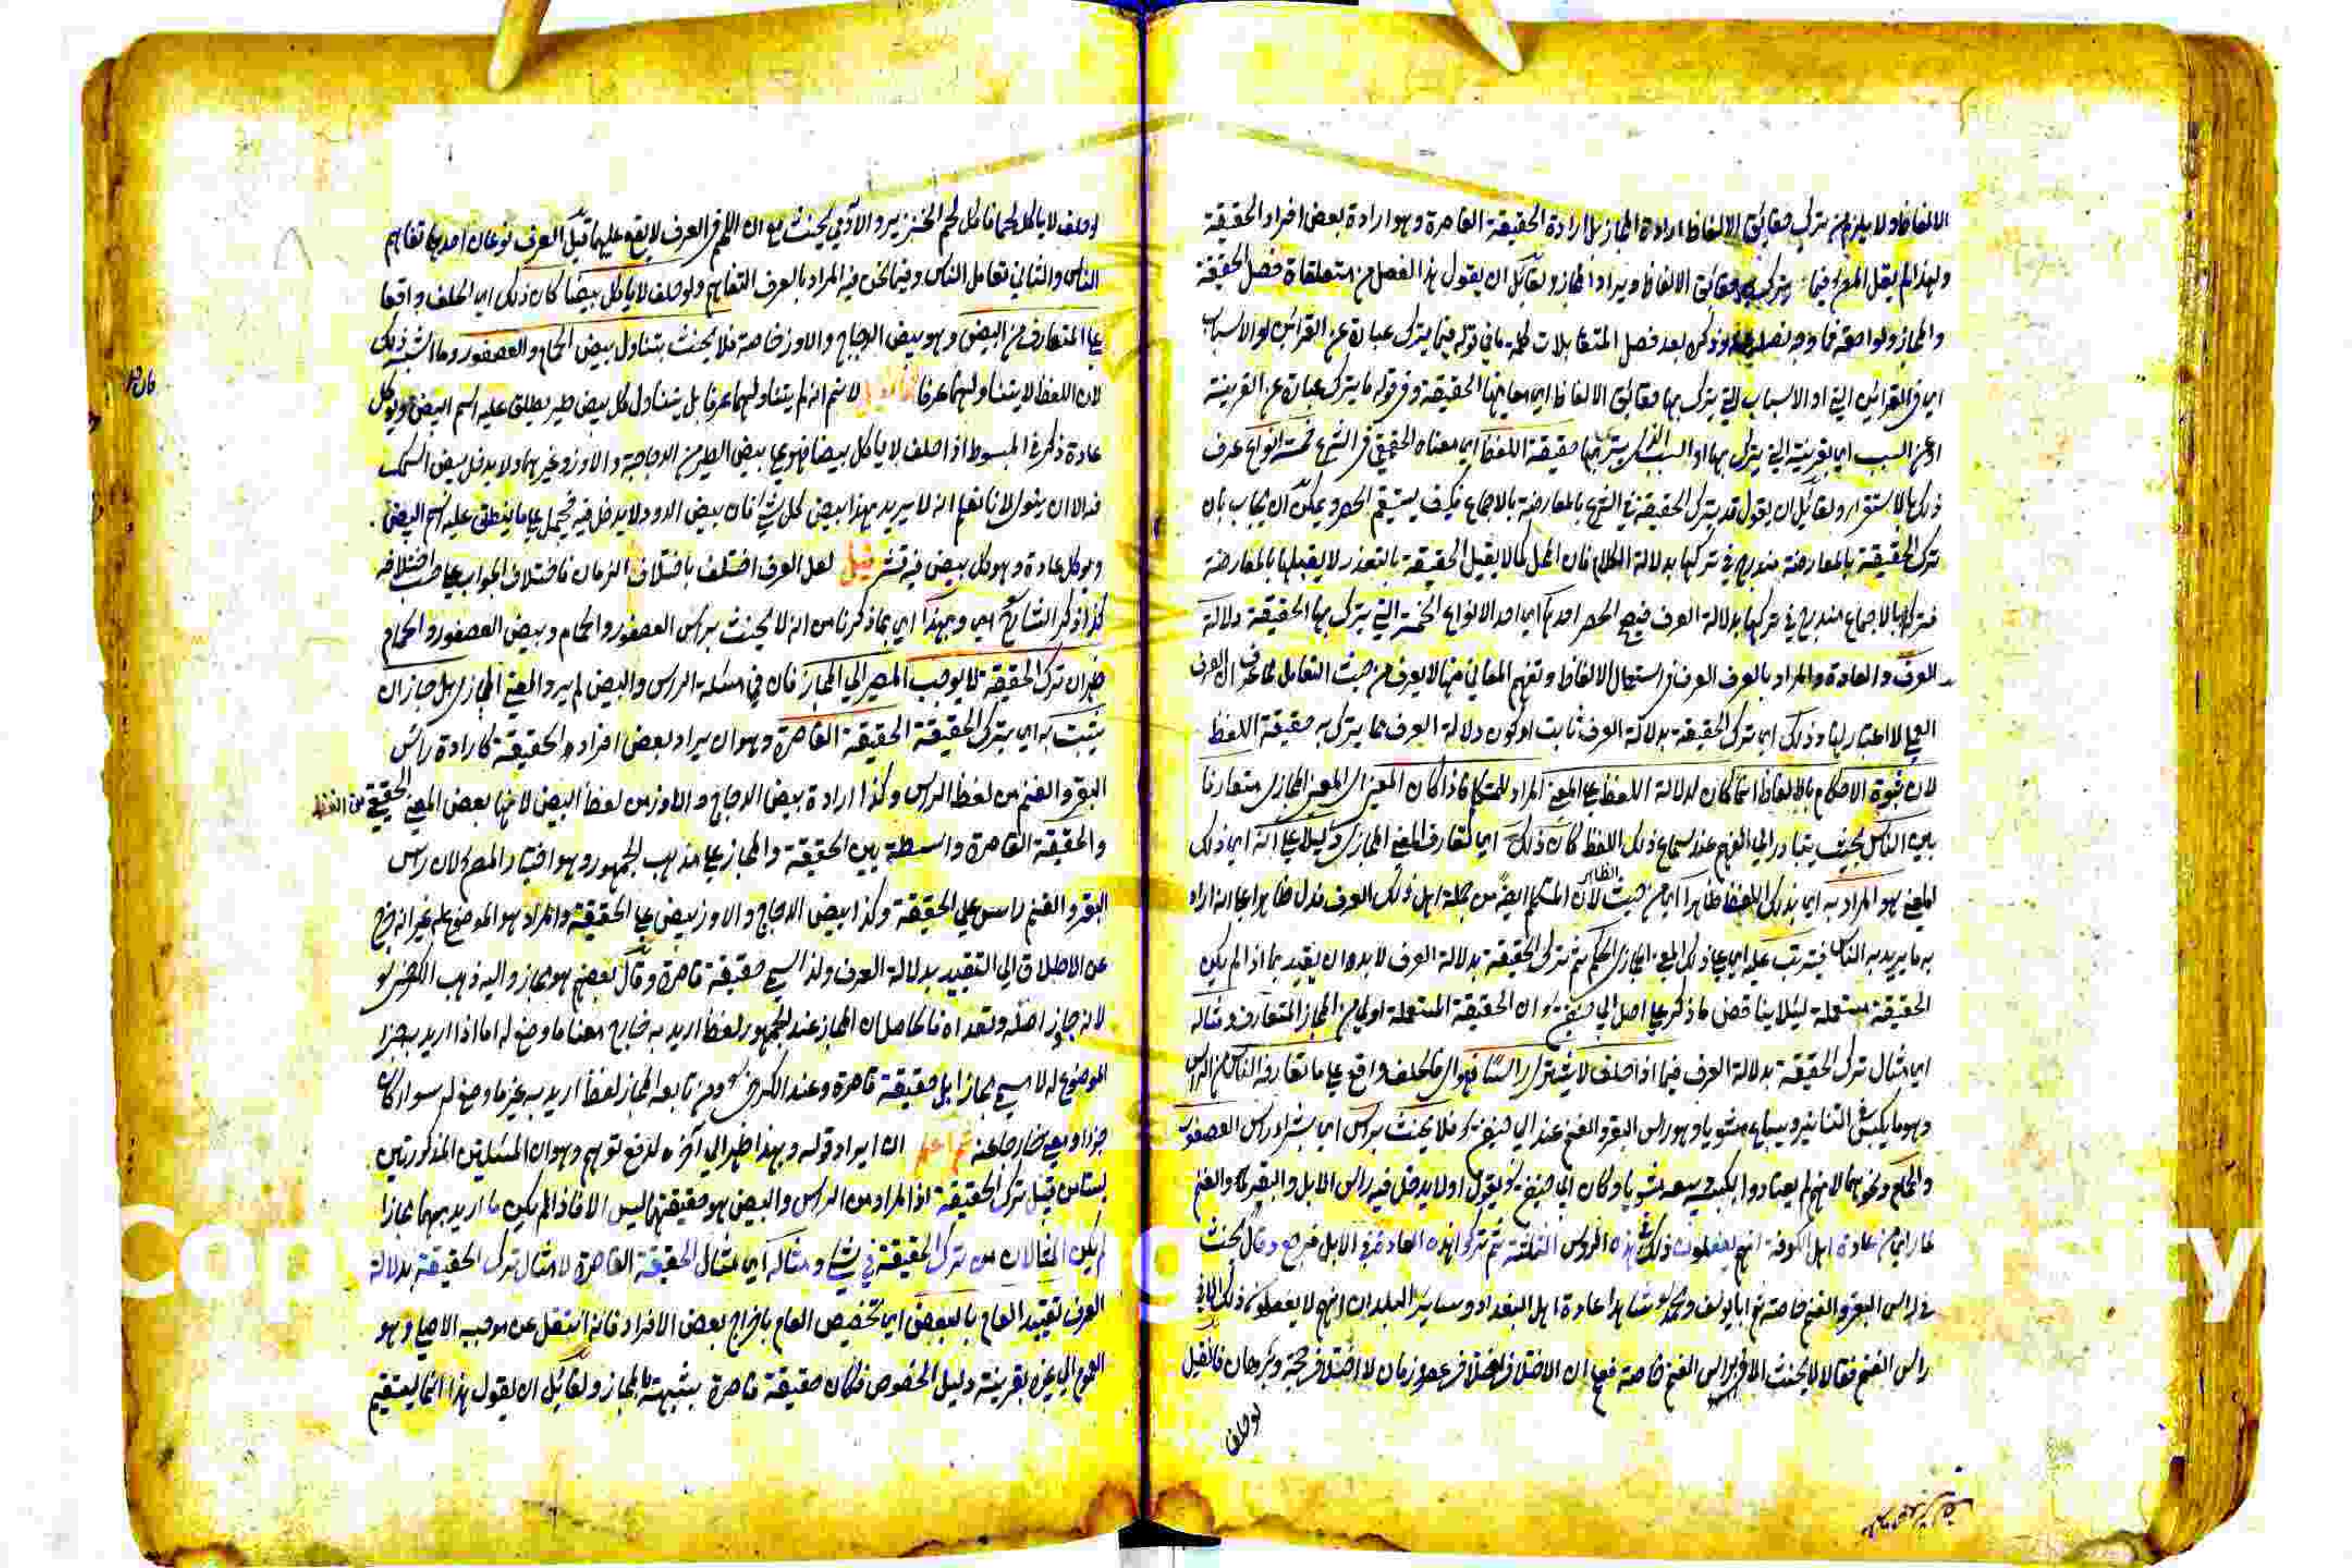 الالفاظ ولا يلزم من ترك حقايق الالفاظ ارادة المجاز بل ارادة الحقيقة القاصرة وهو ارادة بعض افراد الحقيقة
ولهذا لم يقل المص فيما يترك به حقايق الالفاظ ويراد المجاز ولقائل ان يقول هذا الفصل من متعلقات فصل الحقيقة
والمجاز ولواحقه فما وجه فصله وذكره بعد فصل المتقابلات كلمة ما في قوله فيما يترك عبارة عن القرائن او الاسباب
اي في القرائن التي او الاسباب التي يترك بها حقايق الالفاظ اي معانيها الحقيقة وفي قوله ما يترك عبارة عن القرينة
او عن السبب اي القرينة التي يترك بها او السبب الذي يترك بها حقيقة اللفظ اي معناه الحقيقي في الشرع خمسة انواع عرف
ذلك بالاستقراء ولقائل ان يقول قد يترك الحقيقة في الشرع بالمعارضة بالاجماع فكيف يستقيم الحصر ويمكن ان يجاب بان
ترك الحقيقة بالمعارضة مندرج في تركها بدلالة الكلام فان المحل كما لا يقبل الحقيقة بالتعذر لا يقبلها بالمعارضة
فتركها بالاجماع مندرج في تركها بدلالة العرف فيصح الحصر احدها اي احد الانواع الخمسة التي يترك بها الحقيقة دلالة
العرف والعادة والمراد بالعرف العرف في استعمال الالفاظ وتفهم المعاني منها لا يعرف من حيث التعامل لما عرف ان العرف
العملي لا اعتبار لها وذلك اي ترك الحقيقة بدلالة العرف ثابت او كون دلالة العرف مما يترك به حقيقة اللفظ
لان ثبوت الاحكام بالالفاظ انما كان لدلالة اللفظ على المعنى المراد للمتكلم فاذا كان المعنى اي المعنى المجازي متعارفا
بين الناس بحيث يتبادر الى الفهم عند سماع ذلك اللفظ كان ذلك اي تعارف المعنى المجازي دليلا على انه اي ذلك
المعنى هو المراد به اي بذلك اللفظ ظاهرا اي من حيث الظاهر لان المتكلم ايضا من جملة اهل ذلك العرف فدل ظاهرا على انه اراد
به ما يريد به الناس فيترتب عليه اي على ذلك المعنى المجازي الحكم ثم ترك الحقيقة بدلالة العرف لابد وان يقيد بما اذا لم يكن
الحقيقة مستعملة لئلا يناقض ما ذكر على اصل ابي حنيفة ان الحقيقة المستعملة اولى من المجاز المتعارف ومثاله
اي مثال ترك الحقيقة بدلالة العرف فيما اذا حلف لا يشتري راسا فهو اي فالحلف واقع على ما تعارفه الناس من الراس
وهو ما يكبس في التنانير ويباع مشويا وهو راس البقر والغنم عند ابي حنيفة فلا يحنث براس اي بشراء راس العصفور
والحمام ونحوهما لانهم لم يعتادوا وكان ابي حنيفة يقول اولا يدخل فيه راس الابل والبقر والغنم
لما راى من عادة اهل الكوفة انهم يفعلون ذلك في هذه الرؤس الثلثة ثم تركوا هذه العادة في الابل فرجع وقال يحنث
في راس البقر والغنم خاصة ثم ابا يوسف ومحمد شاهدا عادة اهل البغداد وسائر البلدان انهم لا يفعلون ذلك الا في
راس الغنم فقالا لا يحنث الا في راس الغنم خاصة فعلم ان الاختلاف اختلاف عصر وزمان لا اختلاف حجة وبرهان فان قيل
لو حلف
لو حلف لا ياكل لحما فاكل لحم الخنزير والادمي يحنث مع ان اللحم في العرف لا يقع عليهما قيل العرف نوعان احدهما تفاهم
الناس والثاني تعامل الناس وفيما نحن فيه المراد بالعرف التفاهم ولو حلف لا ياكل بيضا كان ذلك اي الحلف واقعا
على المتعارف من البيض وهو بيض الدجاج والاوز خاصة فلا يحنث بتناول بيض الحمام والعصفور وما اشبه ذلك
لان اللفظ لا يتناولهما عرفا فان قيل لا نسلم انه لم يتناولهما عرفا بل يتناول كل بيض طير يطلق عليه اسم البيض ويوكل
عادة ذكر في المبسوط اذا حلف لا ياكل بيضا فهو على بيض الطير من الدجاجة والاوز وغيرهما ولا يدخل بيض السمك
فيه الا ان ينوي لانا نعلم انه لا يريد بهذا بيض كل شيء فان بيض الدود لا يدخل فيه فيحمل على ما ينطلق عليه اسم البيض
ويوكل عادة وهو كل بيض فيه قشر قيل لعل العرف اختلف باختلاف الزمان فاختلاف الجواب على حسب اختلافه
كذا ذكر الشارح وبهذا اي بما ذكرنا من انه لا يحنث براس العصفور والحمام وبيض العصفور والحمام
ظهر ان ترك الحقيقة لا يوجب المصير الى المجاز فان في مسئلة الراس والبيض لم يرد المعنى المجازي بل جاز ان
يثبت به اي بترك الحقيقة الحقيقة القاصرة وهو ان يراد بعض افراد الحقيقة كارادة راس
البقر والغنم من لفظ الراس وكذا ارادة بيض الدجاج والاوز من لفظ البيض لانها بعض المعنى الحقيقي من اللفظ
والحقيقة القاصرة واسطة بين الحقيقة والمجاز على مذهب الجمهور وهو اختيار المص لان راس
البقر والغنم راس على الحقيقة وكذا بيض الدجاج والاوز بيض على الحقيقة والمراد هو الموضوع له غير انه خرج
عن الاطلاق الى التقييد بدلالة العرف ولذا سمي حقيقة قاصرة وقال بعضهم هو مجاز واليه ذهب الكرخي
لانه جاوز اصله وتعداه فالحاصل ان المجاز عند الجمهور لفظ اريد به خارج معنا ما وضع له اما اذا اريد به جزء
الموضوع له لا يسمى مجازا بل حقيقة قاصرة وعند الكرخي ومن تابعه المجاز لفظ اريد به غير ما وضع له سواء كان
جزءا ومعنى خارجا عنه ثم اعلم ان ايراد قوله وبهذا ظهر الى آخره لدفع توهم وهو ان المسئلتين المذكورتين
ليستا من قبيل ترك الحقيقة اذ المراد من الراس والبيض هو حقيقتهما ليس الا فاذا لم يكن ما اريد بهما مجازا
لم يكن المثالان من ترك الحقيقة في شيء ومثاله اي مثال الحقيقة القاصرة لا مثال ترك الحقيقة بدلالة
العرف تقييد العام بالبعض اي تخصيص العام باخراج بعض الافراد فانه انتقل عن موجبه الاصلي وهو
العموم الى غيره بقرينة دليل الخصوص فكان حقيقة قاصرة شبيهة بالمجاز ولقائل ان يقول هذا انما يستقيم